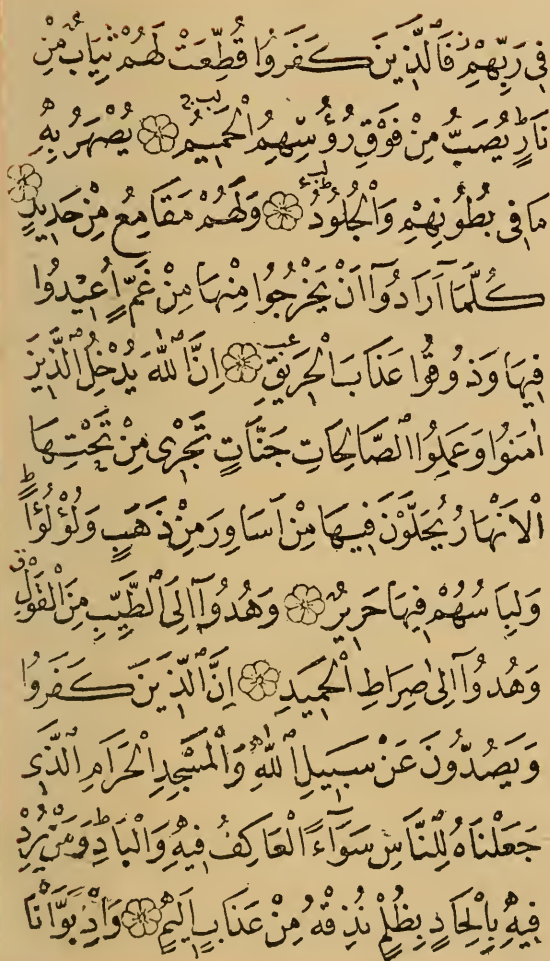 فِى رَبِّهِمْ فَالَّذِينَ كَفَرُوا قُطِّعَتْ لَهُمْ ثِيَابٌ مِنْ
نَارٍ يُصَبُّ مِنْ فَوْقِ رُؤُسِهِمُ الْحَمِيمُ يُصْهَرُ بِهِ
مَا فِى بُطُونِهِمْ وَالْجُلُودُ وَلَهُمْ مَقَامِعُ مِنْ حَدِيدٍ
كُلَّمَا اَرَادُوا اَنْ يَخْرُجُوا مِنْهَا مِنْ غَمٍّ اُعِيْدُوا
فِيهَا وَذُوقُوا عَذَابَ الْحَرِيقِ اِنَّ اللّٰهَ يُدْخِلُ الَّذِينَ
اٰمَنُوا وَعَمِلُوا الصَّالِحَاتِ جَنَّاتٍ تَجْرِى مِنْ تَحْتِهَا
الْاَنْهَارُ يُحَلَّوْنَ فِيهَا مِنْ اَسَاوِرَ مِنْ ذَهَبٍ وَلُؤْلُؤًا
وَلِبَاسُهُمْ فِيهَا حَرِيرٌ وَهُدُوا اِلَى الطَّيِّبِ مِنَ الْقَوْلِ
وَهُدُوا اِلٰى صِرَاطِ الْحَمِيدِ اِنَّ الَّذِينَ كَفَرُوا
وَيَصُدُّونَ عَنْ سَبِيلِ اللّٰهِ وَالْمَسْجِدِ الْحَرَامِ الَّذِى
جَعَلْنَاهُ لِلنَّاسِ سَوَاءً الْعَاكِفُ فِيهِ وَالْبَادِ وَمَنْ يُرِدْ
فِيهِ بِاِلْحَادٍ بِظُلْمٍ نُذِقْهُ مِنْ عَذَابٍ اَلِيمٍ وَاِذْ بَوَّاْنَا